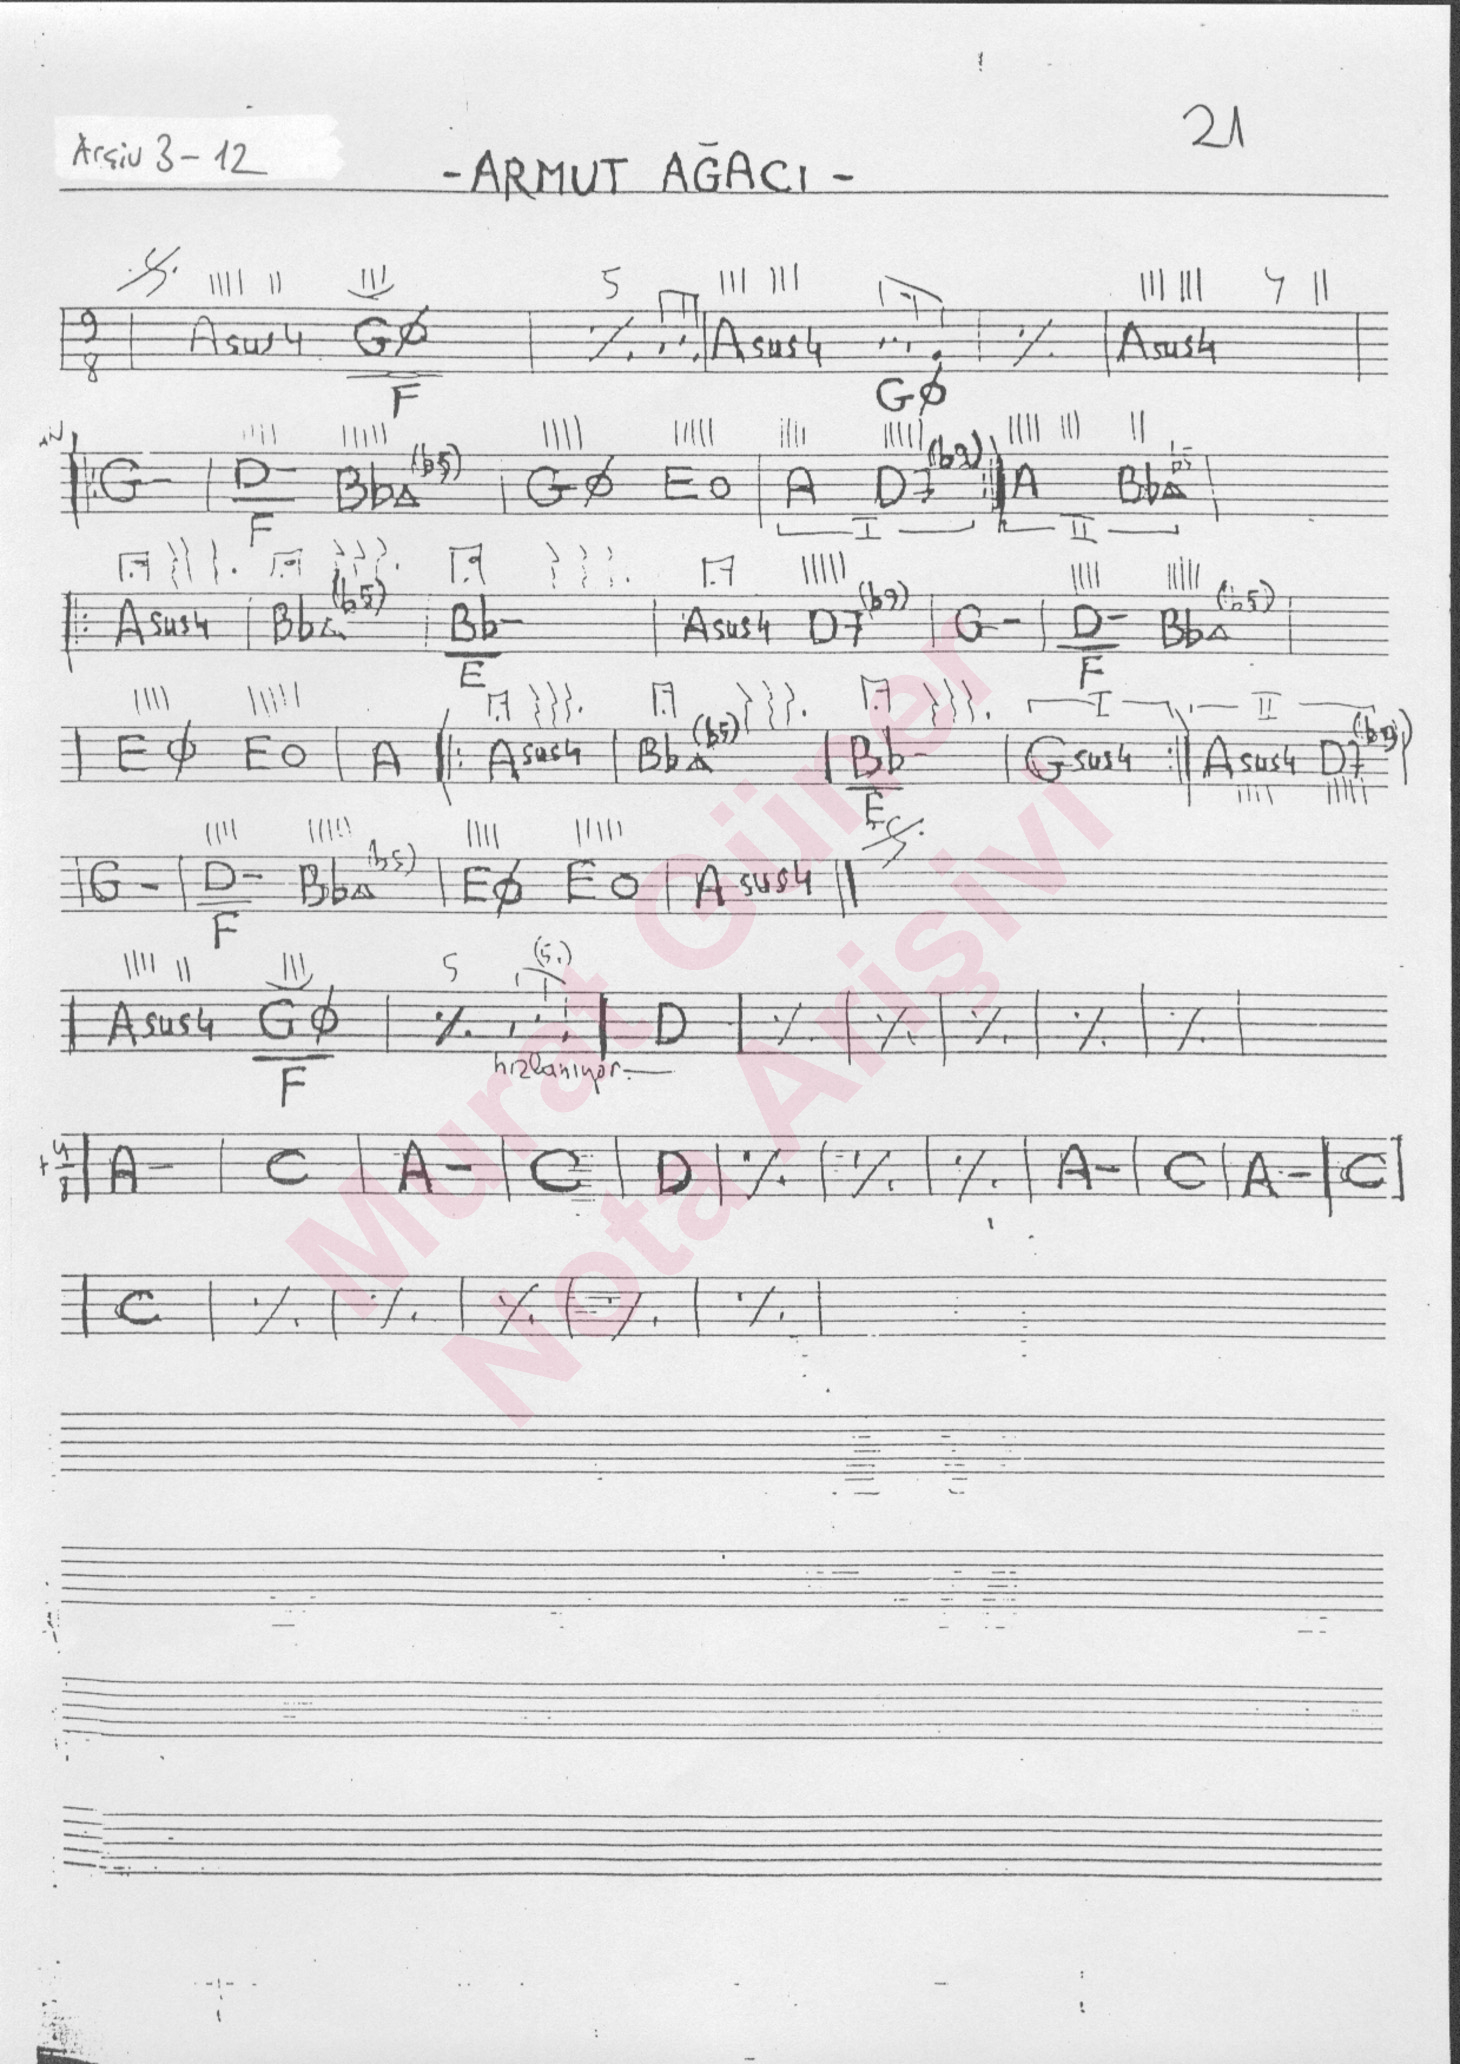 21
Arşiv 3-12
- ARMUT AĞACI -
9/8 Asus4 GØ/F | 5 ٪ | Asus4 GØ | ٪ | Asus4
G- | D-/F Bb△(b5) | GØ Eo | A D7(b9) I :| A Bb△b5 II |
|: Asus4 | Bb△(b5) | Bb-/E | Asus4 D7(b9) | G- | D-/F Bb△(b5) |
| EØ Eo | A |: Asus4 | Bb△(b5) | Bb-/E | I Gsus4 :| II Asus4 D7(b9)
| G- | D-/F Bb△(b5) | EØ Eo | Asus4 ||
| Asus4 GØ/F | 5 ٪ (5.) | D | ٪ | ٪ | ٪ | ٪ | ٪ |
hızlanıyor
| A- | C | A- | C | D | ٪ | ٪ | ٪ | A- | C | A- | C |
| C | ٪ | ٪ | ٪ | ٪ | ٪ |
Murat Güner
Nota Arişivi